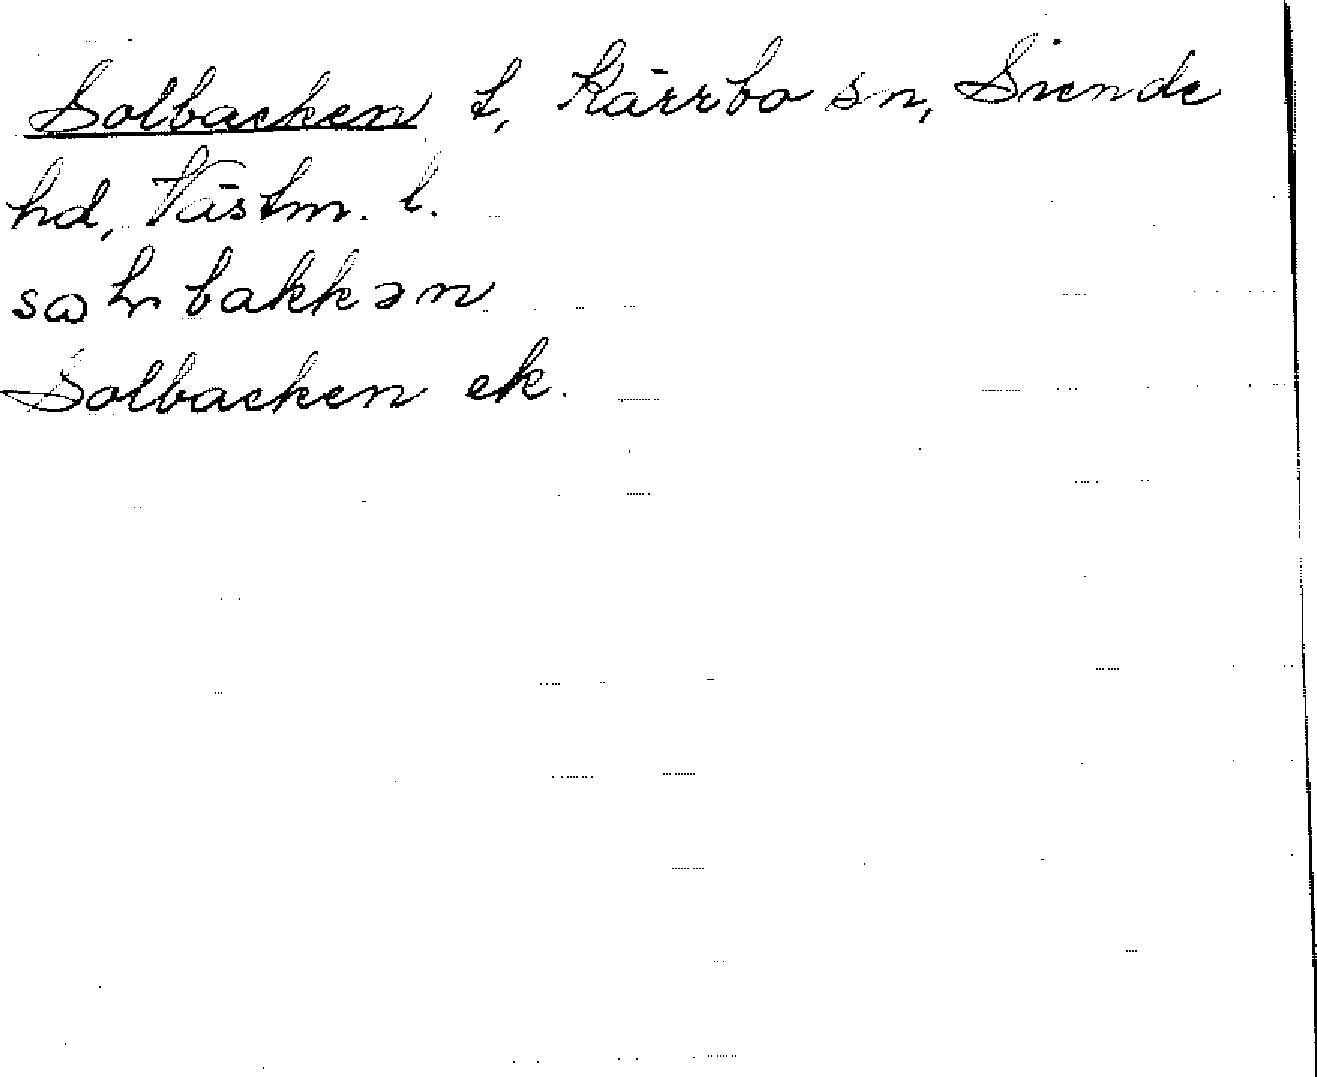 Solbacken t, Kärrbo sn, Siende
hd, Västm. l.
bakkən
Solbacken ek.